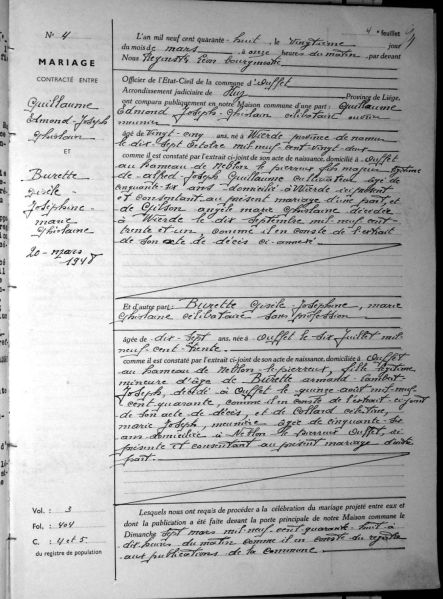 4e feuillet
N° 4
MARIAGE
CONTRACTÉ ENTRE
Guillaume
Edmond-Joseph
Ghislain
ET
Burette
Gisèle
Joséphine-
marie
Ghislaine
20-mars
1948
L'an mil neuf cent quarante-huit, le vingtième jour
du mois de mars à onze heures du matin, par devant
Nous Léon bourgmestre
Officier de l'Etat-Civil de la commune d'Ouffet
Arrondissement judiciaire de Huy Province de Liége,
ont comparu publiquement en notre Maison commune d'une part: Guillaume
Edmond Joseph-Ghislain célibataire
meunier
âgé de vingt-cinq ans, né à Wierde province de namur
le dix sept octobre mil neuf cent vingt-deux
comme il est constaté par l'extrait ci-joint de son acte de naissance, domicilié à Ouffet
au hameau de le pierreux fils majeur légitime
de Alfred-Joseph Guillaume cultivateur âgé de
cinquante six ans domicilié à Wierde ici présent
et consentant au présent mariage d'une part, et
de angèle marie Ghislaine décédée
à Wierde le dix septembre mil neuf cent
trente et un, comme il en conste de l'extrait
de son acte de décès ci-annexé
Et d'autre part: Burette Gisèle Joséphine, marie
Ghislaine célibataire sans profession
âgée de dix-sept ans, née à Ouffet le six Juillet mil
neuf-cent-trente
comme il est constaté par l'extrait ci-joint de son acte de naissance, domiciliée à Ouffet
au hameau de le pierreux, fille légitime
mineure d'âge de Burette armand-Lambert
Joseph, décédé à Ouffet le quinze août mil-neuf
cent-quarante comme il en conste de l'extrait ci-joint
de son acte de décès, et de Collard célestine,
marie Joseph, meunière âgée de cinquante-six
ans domiciliée à le pierreux Ouffet ici
présente et consentant au présent mariage d'autre
part.
Lesquels nous ont requis de procéder à la célébration du mariage projeté entre eux et
dont la publication a été faite devant la porte principale de notre Maison commune le
Dimanche sept mars mil-neuf-cent-quarante-huit à
dix heures du matin comme il en conste du registre
aux publications de la commune.
Vol.: 3
Fol.: 404
C.: 4 et 5
du registre de population